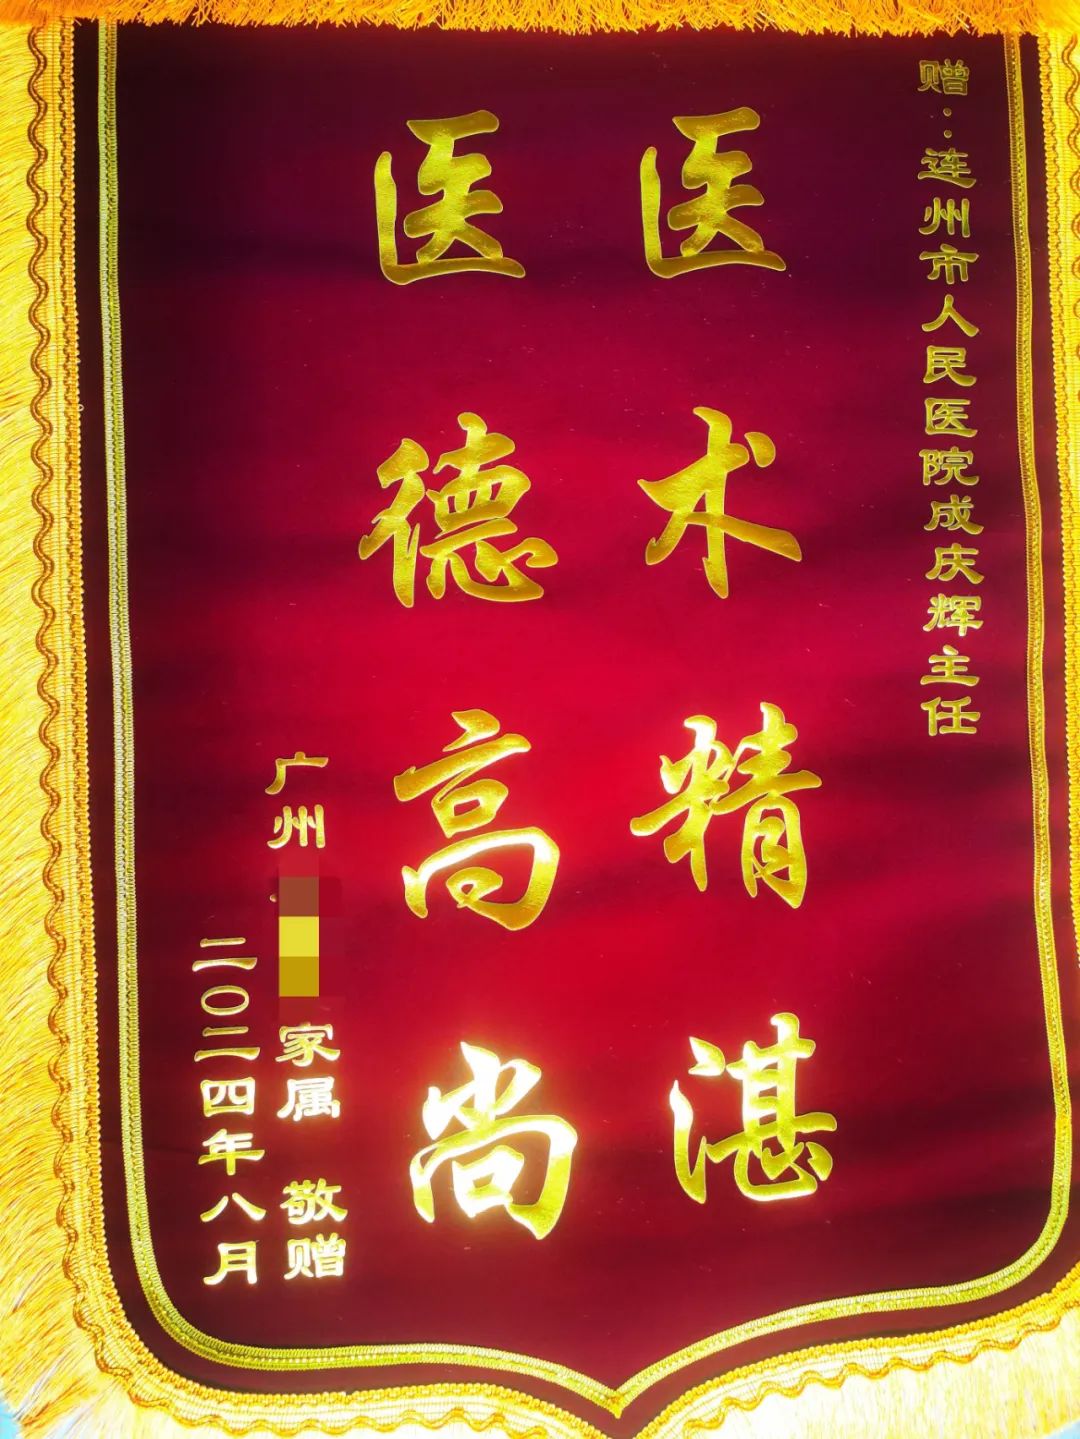 赠：连州市人民医院成庆辉主任
医术精湛
医德高尚
广州 家属 敬赠
二〇二四年八月